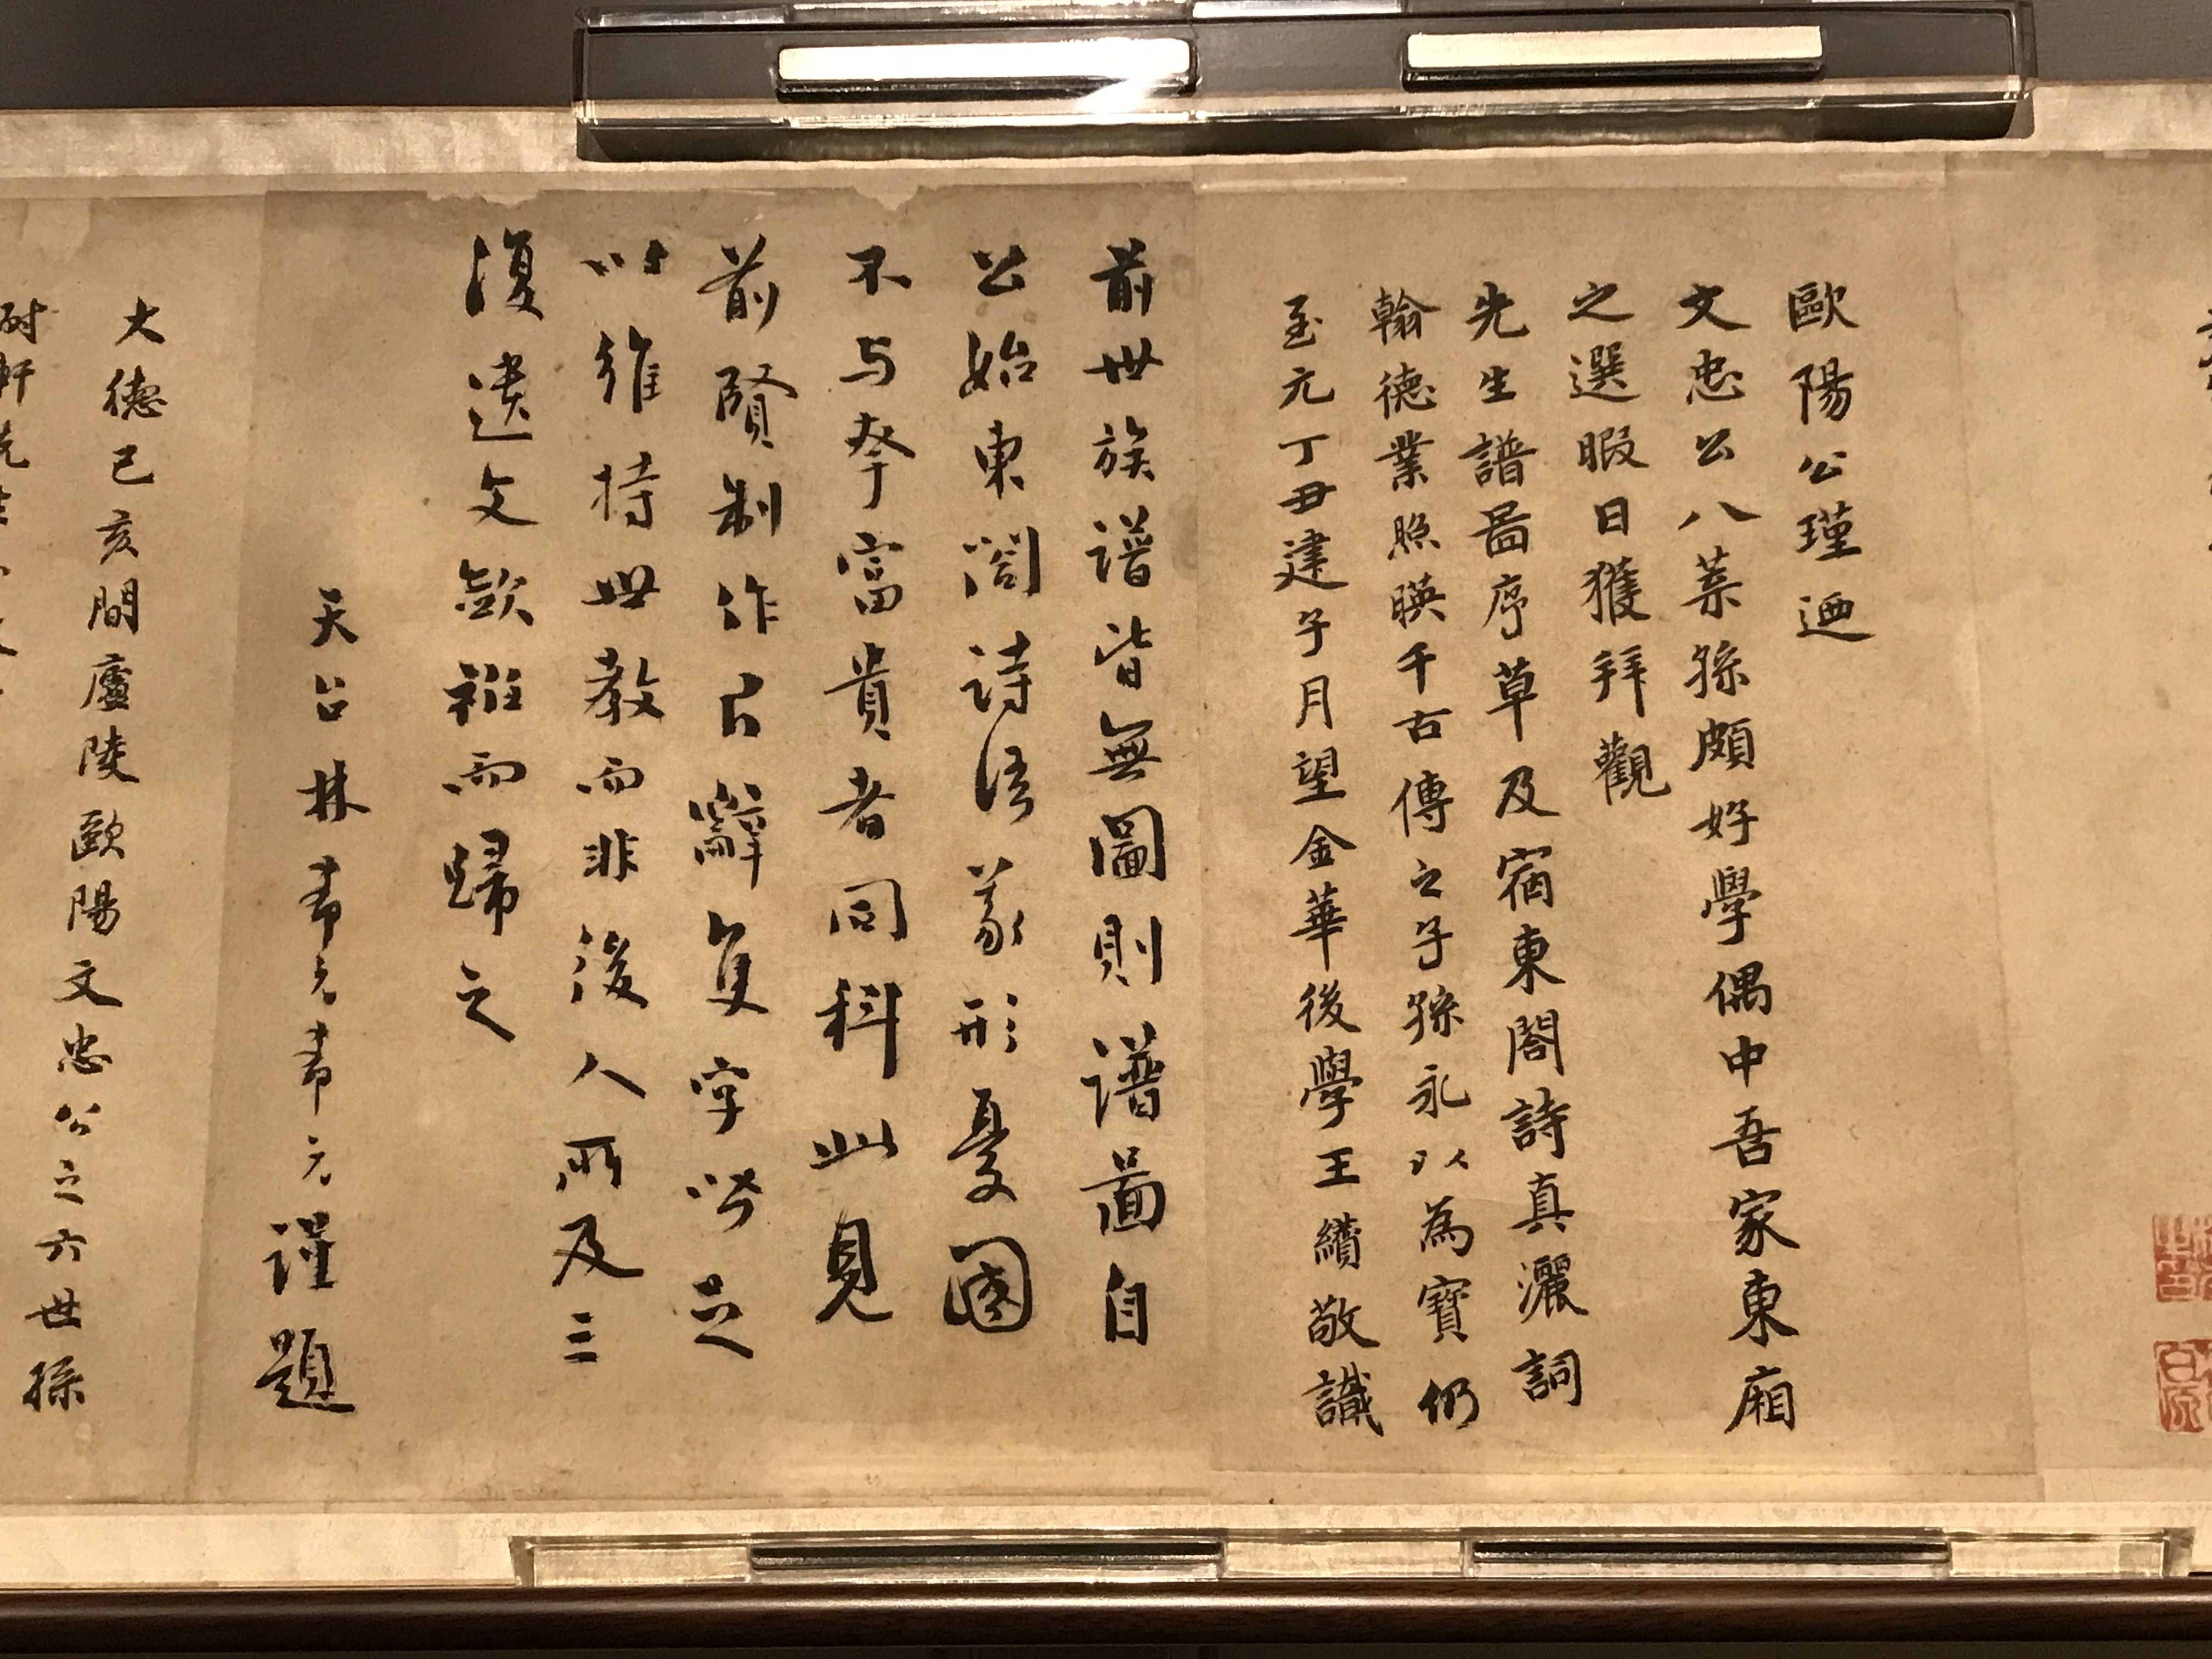 歐陽公瑾迺
文忠公八葉孫頗好學偶中吾家東廂
之選暇日獲拜觀
先生譜啚序草及宿東閣詩真灑詞
翰德業照暎千古傳之子孫永以為寶仍
至元丁丑建子月望金華後學王績敬識
前世族譜皆無圖則譜啚自
公始東閤詩語蒙形憂國
不与夸富貴者同科此見
前賢制作片辭隻字皆足
以維持世教而非後人所及三
復遺文斂衽而歸之
天台林希元希元謹題
大德己亥間廬陵歐陽文忠公之六世孫